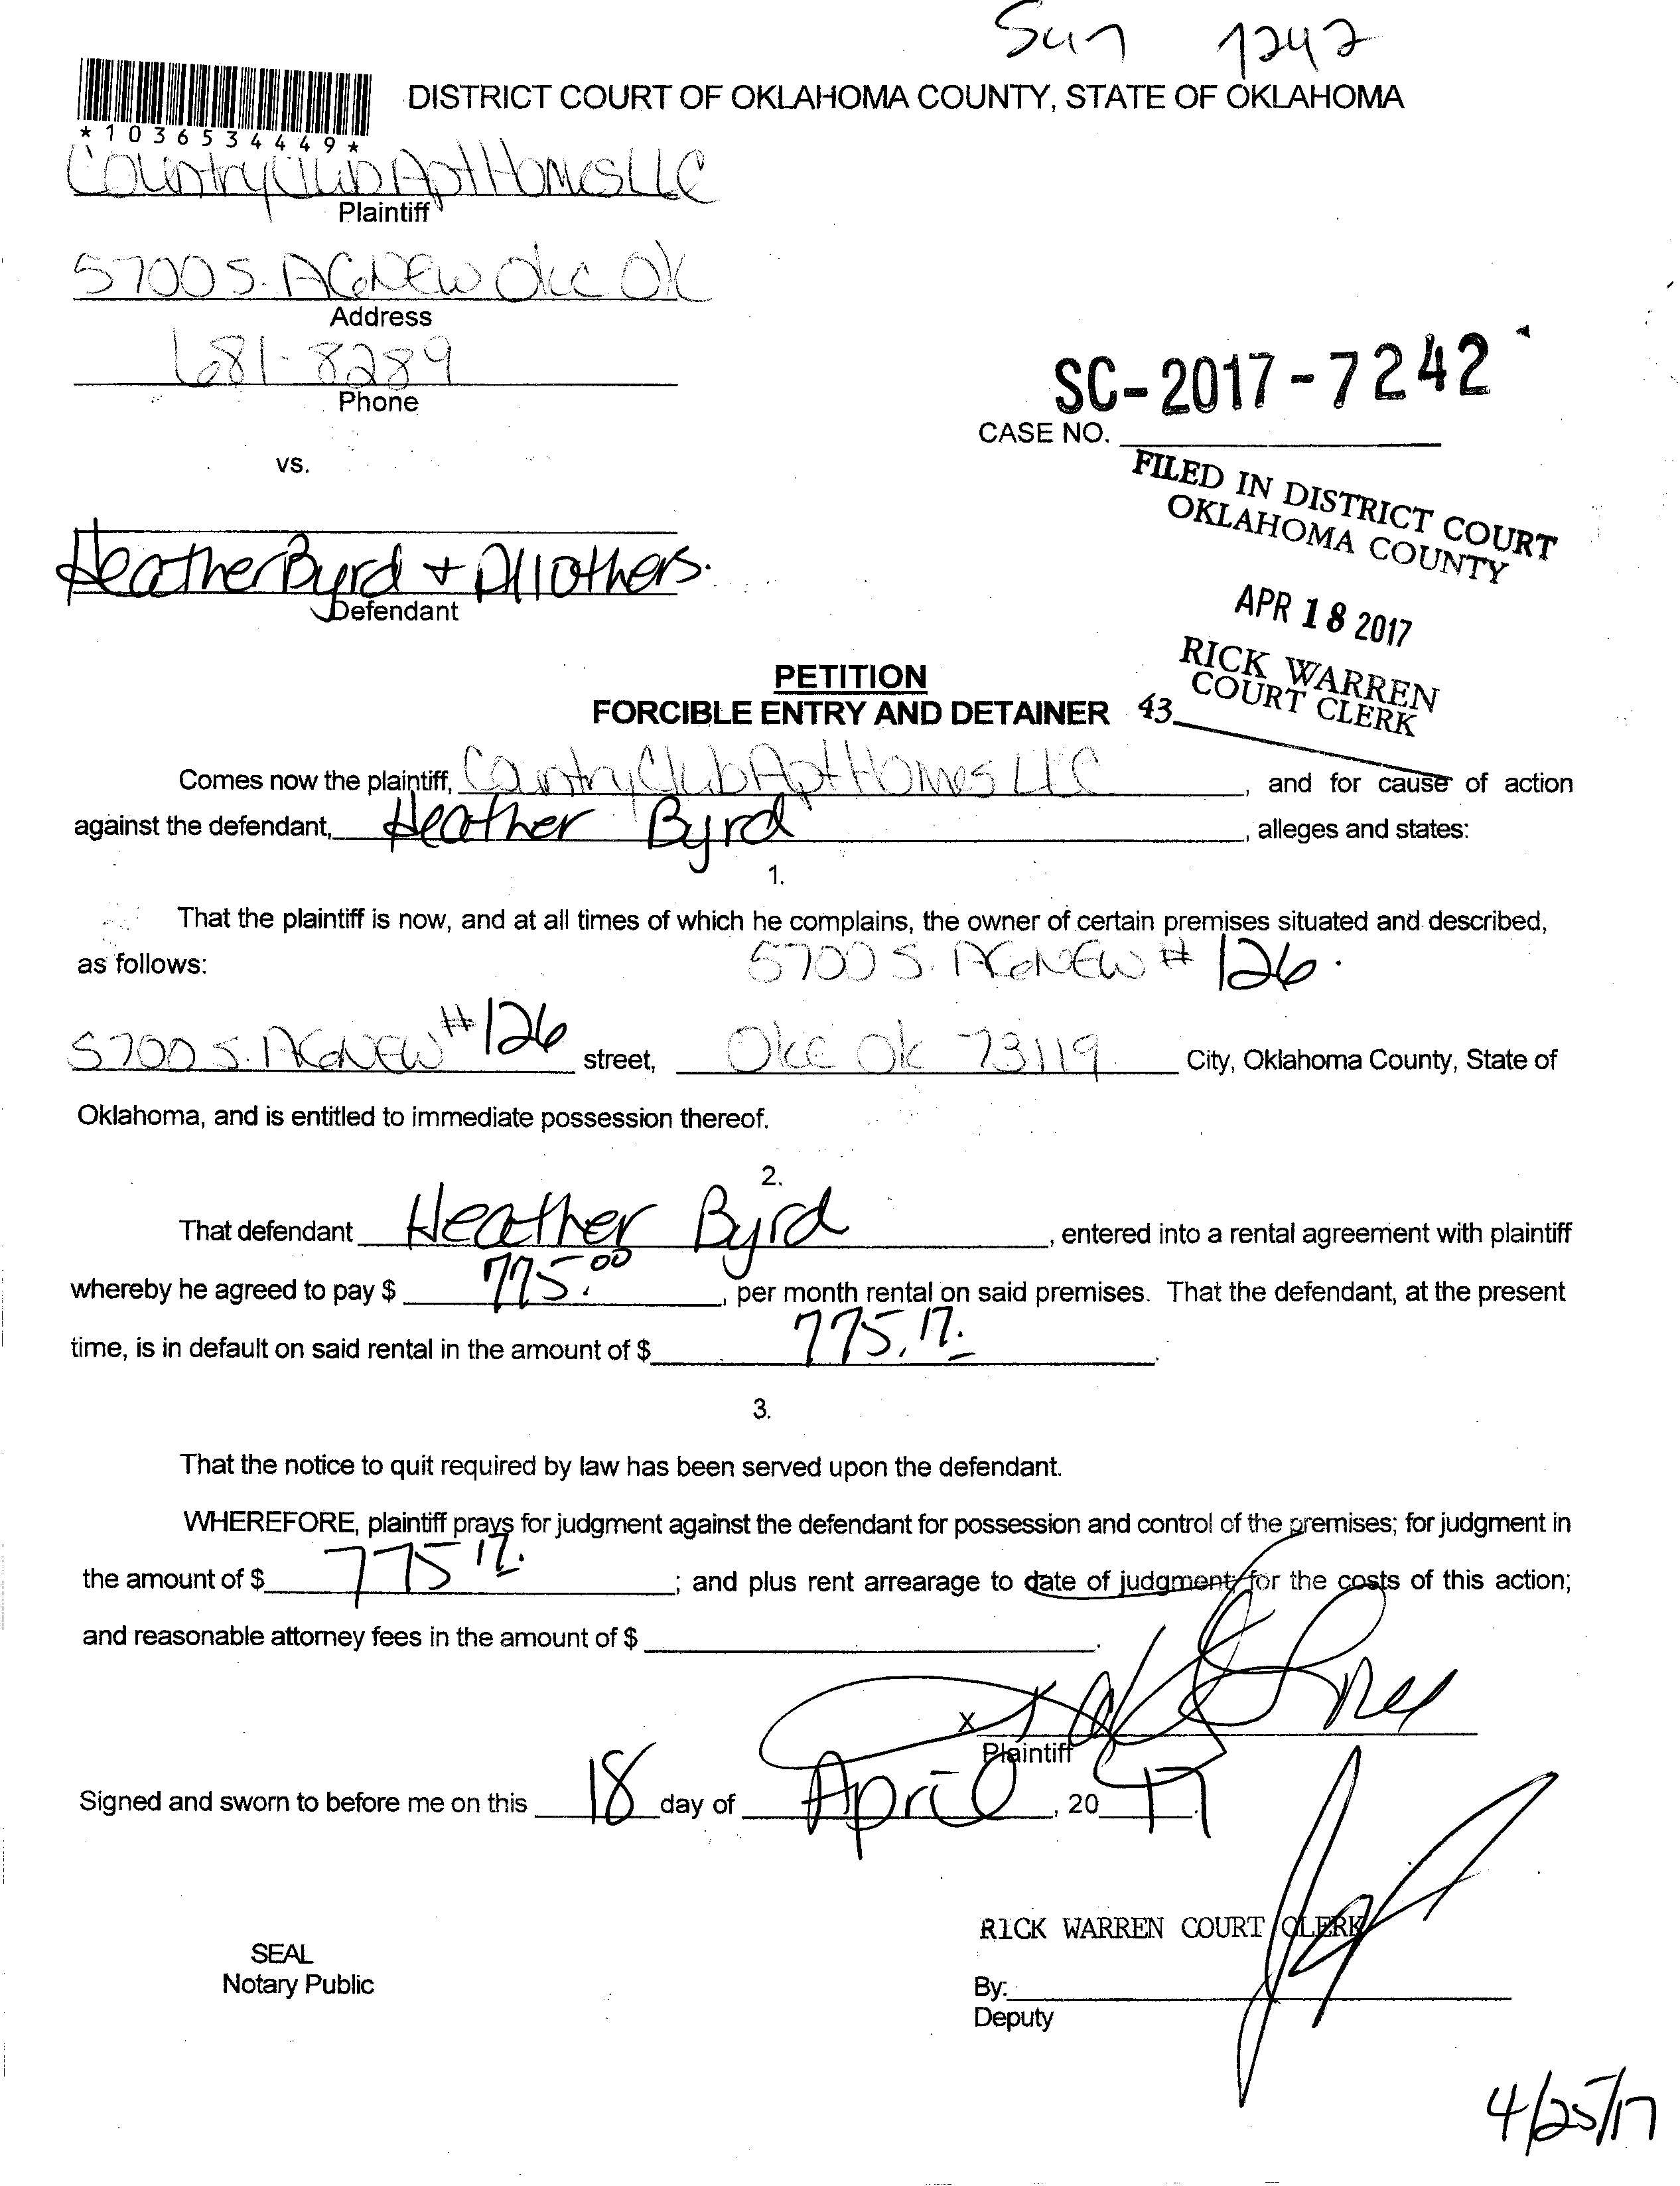 Sun 1242
DISTRICT COURT OF OKLAHOMA COUNTY, STATE OF OKLAHOMA
*1036534449*
Country Club Apt Homes LLC
Plaintiff
5700 S. AGNEW OKC OK
Address
681-8289
Phone
SC-2017-7242
CASE NO.
vs.
FILED IN DISTRICT COURT
OKLAHOMA COUNTY
Heather Byrd + All Others.
Defendant
APR 18 2017
RICK WARREN
COURT CLERK
43
PETITION
FORCIBLE ENTRY AND DETAINER
Comes now the plaintiff, Country Club Apt Homes LLC, and for cause of action
against the defendant, Heather Byrd, alleges and states:
1.
That the plaintiff is now, and at all times of which he complains, the owner of certain premises situated and described,
as follows: 5700 S. AGNEW # 126.
5700 S. AGNEW #126 street, OKC OK 73119 City, Oklahoma County, State of
Oklahoma, and is entitled to immediate possession thereof.
2.
That defendant Heather Byrd, entered into a rental agreement with plaintiff
whereby he agreed to pay $ 775.00, per month rental on said premises. That the defendant, at the present
time, is in default on said rental in the amount of $ 775.17.
3.
That the notice to quit required by law has been served upon the defendant.
WHEREFORE, plaintiff prays for judgment against the defendant for possession and control of the premises; for judgment in
the amount of $ 775 17.; and plus rent arrearage to date of judgment; for the costs of this action;
and reasonable attorney fees in the amount of $ .
X
Plaintiff
Signed and sworn to before me on this 18 day of April, 20 17.
RICK WARREN COURT CLERK
SEAL
Notary Public
By:
Deputy
4/25/17